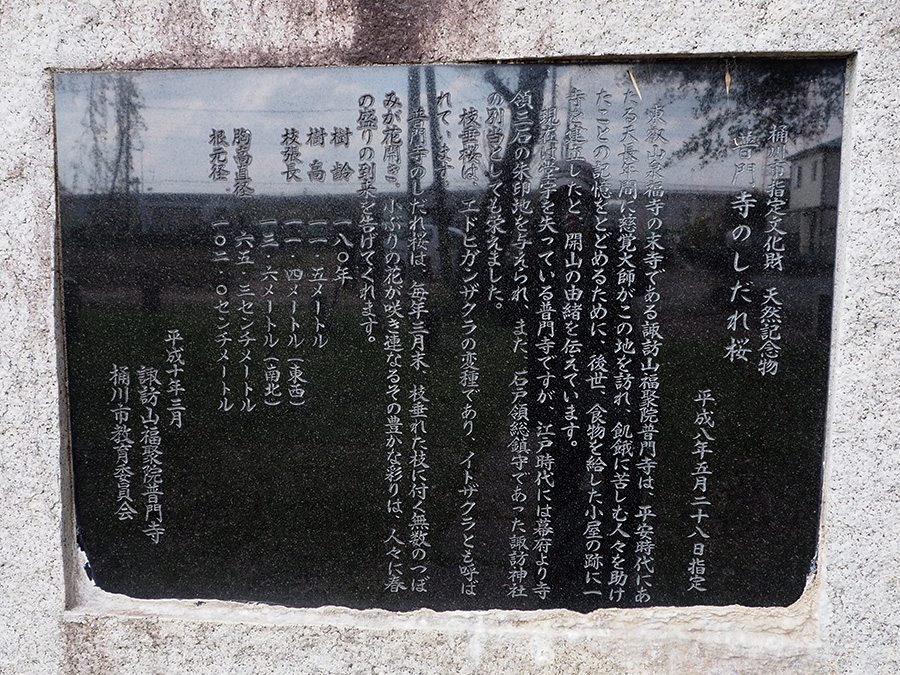 桶川市指定文化財　天然記念物
普門寺のしだれ桜
平成八年五月二十八日指定
東叡山泉福寺の末寺である諏訪山福聚院普門寺は、平安時代にあ
たる天長年間に慈覚大師がこの地を訪れ、飢餓に苦しむ人々を助け
たことの記憶をとどめるために、後世、食物を給した小屋の跡に一
寺を建立したと、開山の由緒を伝えています。
現在は堂宇を失っている普門寺ですが、江戸時代には幕府より寺
領三石の朱印地を与えられ、また、石戸領総鎮守であった諏訪神社
の別当としても栄えました。
枝垂桜は、エドヒガンザクラの変種であり、イトザクラとも呼ば
れています。
普門寺のしだれ桜は、毎年三月末、枝垂れた枝に付く無数のつぼ
みが花開き、小ぶりの花が咲き連なるその豊かな彩りは、人々に春
の盛りの到来を告げてくれます。
樹　齢　一八〇年
樹　高　一一．五メートル
枝張長　一一．四メートル（東西）
一三．六メートル（南北）
胸高直径　六五．三センチメートル
根元径　一〇二．〇センチメートル
平成十年三月
諏訪山福聚院普門寺
桶川市教育委員会